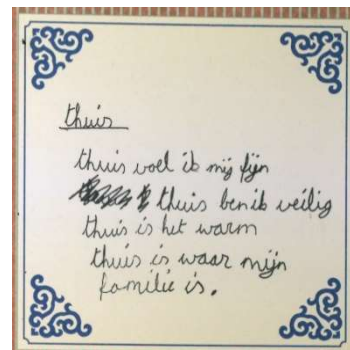 thuis
thuis voel ik mij fijn
thuis ben ik veilig
thuis is het warm
thuis is waar mijn
familie is.